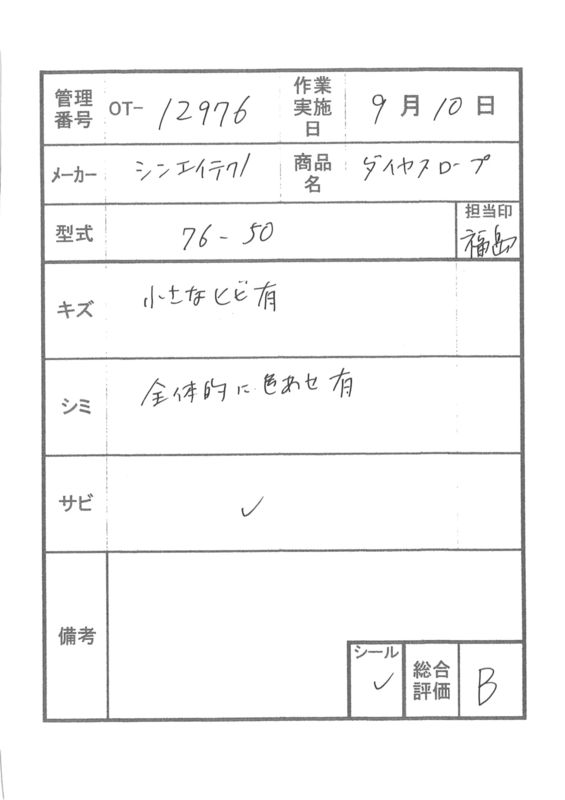 管理番号 OT- 12976 作業実施日 9月10日
メーカー シンエイテク 商品名 ダイヤスロープ
型式 76-50 担当印 福島
キズ 小さなヒビ有
シミ 全体的に色あせ有
サビ ✓
備考
シール ✓ 総合評価 B